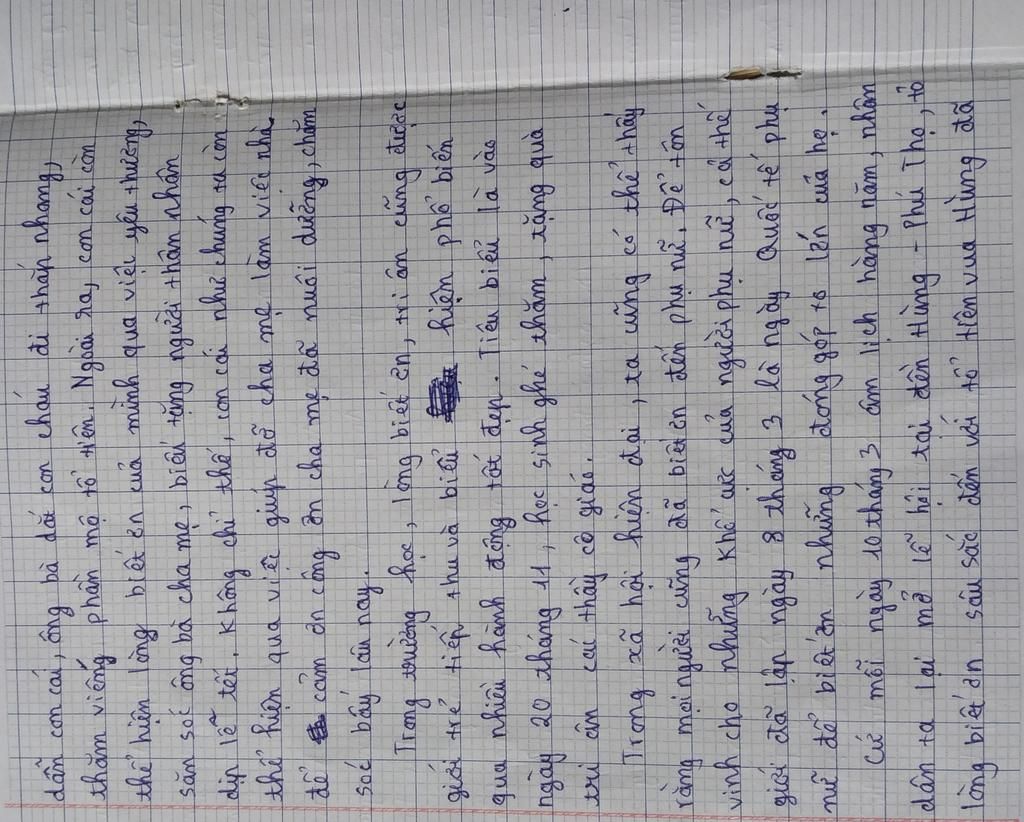 dẫn con cái, ông bà dắt con cháu đi thắp nhang,
thăm viếng phần mộ tổ tiên. Ngoài ra, con cái còn
thể hiện lòng biết ơn của mình qua việc yêu thương,
săn sóc ông bà cha mẹ, biếu tặng người thân nhân
dịp lễ tết. Không chỉ thế, con cái như chúng ta còn
thể hiện qua việc giúp đỡ cha mẹ làm việc nhà
để cảm ơn công ơn cha mẹ đã nuôi dưỡng, chăm
sóc bấy lâu nay.
Trong trường học, lòng biết ơn, tri ân cũng được
giới trẻ tiếp thu và biểu hiện phổ biến
qua nhiều hành động tốt đẹp. Tiêu biểu là vào
ngày 20 tháng 11, học sinh ghé thăm, tặng quà
tri ân các thầy cô giáo.
Trong xã hội hiện đại, ta cũng có thể thấy
rằng mọi người cũng đã biết ơn đến phụ nữ. Để tôn
vinh cho những khổ cực của người phụ nữ, cả thế
giới đã lập ngày 8 tháng 3 là ngày Quốc tế phụ
nữ để biết ơn những đóng góp to lớn của họ.
Cứ mỗi ngày 10 tháng 3 âm lịch hàng năm, nhân
dân ta lại mở lễ hội tại đền Hùng - Phú Thọ, tỏ
lòng biết ơn sâu sắc đến với tổ tiên vua Hùng đã